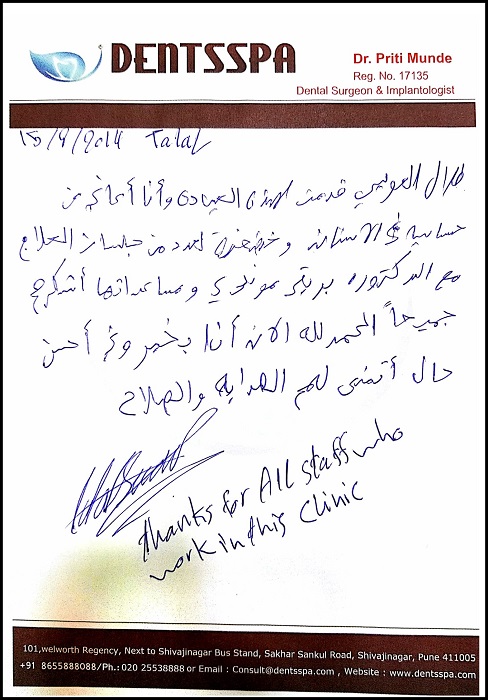 DENTSSPA
Dr. Priti Munde
Reg. No. 17135
Dental Surgeon & Implantologist
15/9/2014 Talal
طلال قدمت لهذه العيادة وأنا أعاني من
حساسية في الاسنان وخضعت لعدد من جلسات العلاج
مع الدكتوره بريتي موندي ومساعداتها أشكرهم
جميعاً الحمد لله الان أنا بخير وفي أحسن
حال أتمنى لهم الهداية والصلاح
Thanks for All staff who
work in this clinic
101,welworth Regency, Next to Shivajinagar Bus Stand, Sakhar Sankul Road, Shivajinagar, Pune 411005
+91 8655888088/Ph.: 020 25538888 or Email : Consult@dentsspa.com , Website : www.dentsspa.com